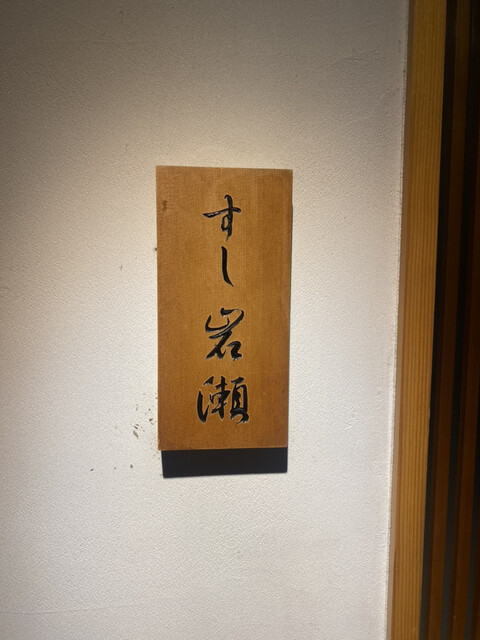 すし 岩瀬